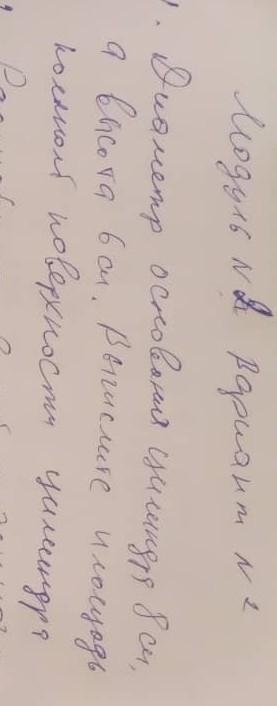 Модуль N 2 Вариант N 2
1. Диаметр основания цилиндра 8 см,
а высота 6 см. Вычислите площадь
полной поверхности цилиндра